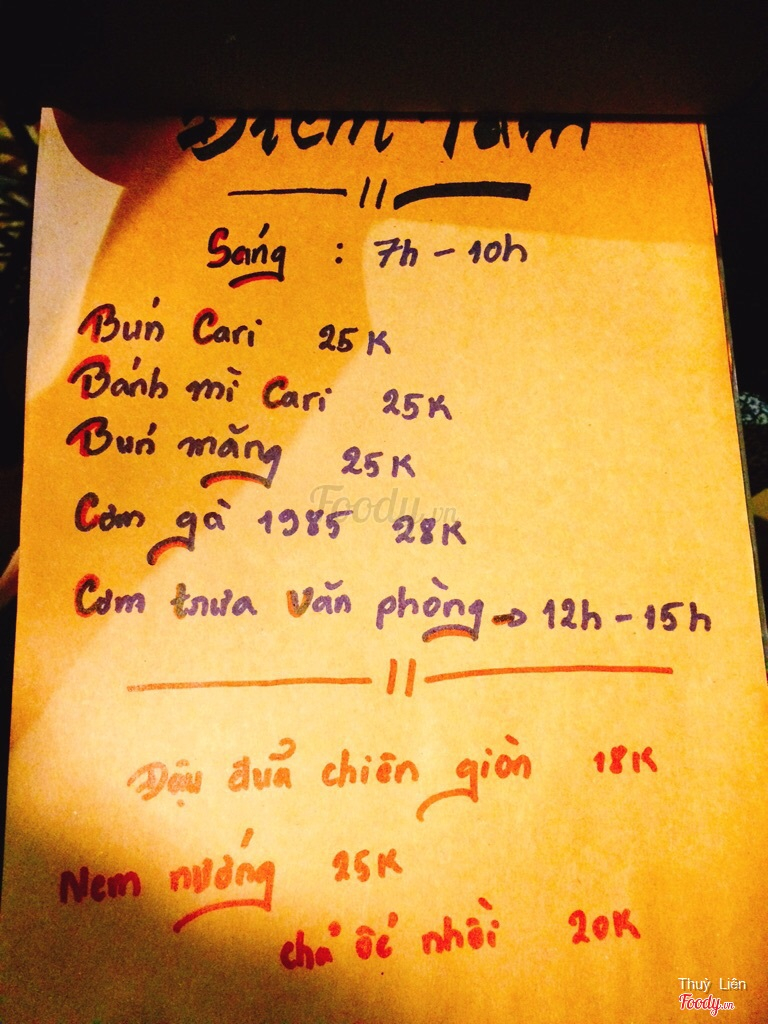 Điểm Tâm
Sáng : 7h - 10h
Bún Cari 25K
Bánh mì Cari 25K
Bún măng 25K
Cơm gà 1985 28K
Cơm trưa văn phòng → 12h - 15h
Đậu đuả chiên giòn 18K
Nem nướng 25K
chả ốc nhồi 20K
Foody.vn
Thuỳ Liên
Foody.vn